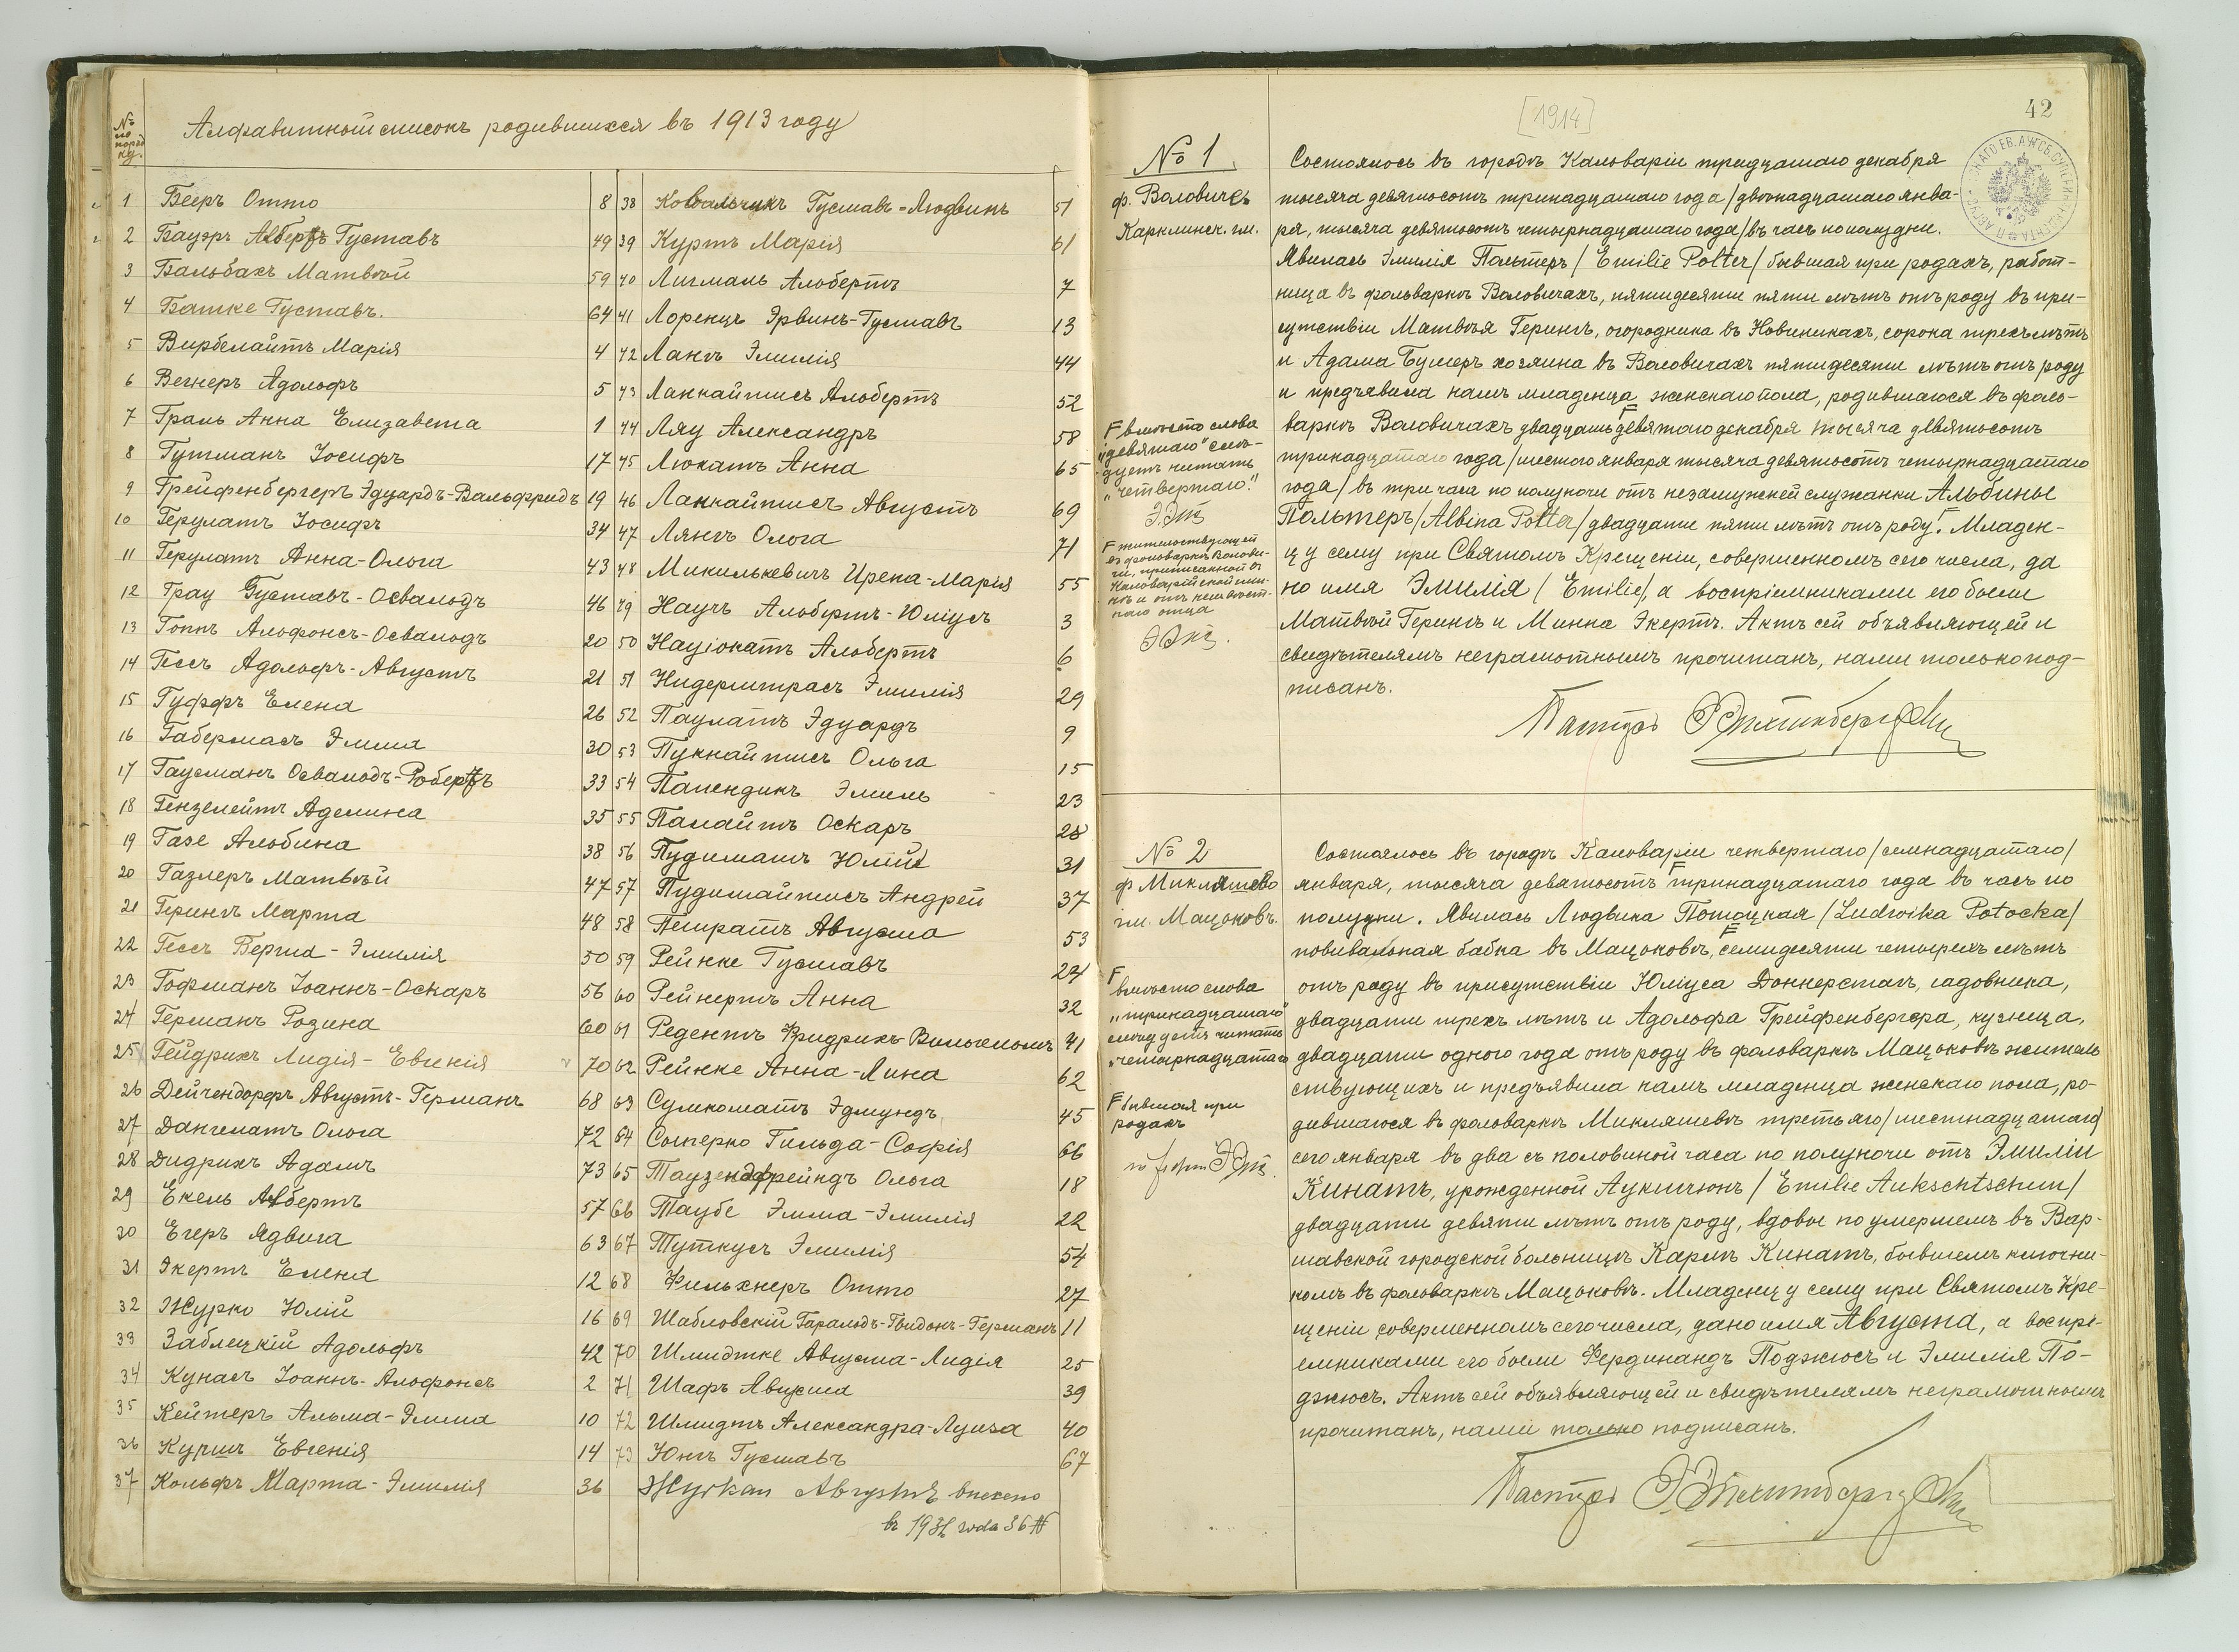 № по поряд ку.
Алфавитный списокъ родившихся въ 1913 году
1 Бееръ Отто 8
2 Бауэръ Альбертъ Густавъ 49
3 Бальбахъ Матвѣй 59
4 Батке Густавъ. 64
5 Вирбелайтъ Марія 4
6 Вегнеръ Адольфъ 5
7 Граль Анна Елизавета 1
8 Гутманъ Іосифъ 17
9 Грейфенбергеръ Эдуардъ-Вальфридъ 19
10 Герулатъ Іосифъ 34
11 Герулатъ Анна-Ольга 43
12 Грау Густавъ-Освальдъ 46
13 Гоппъ Альфонсъ-Освальдъ 20
14 Гессъ Адольфъ-Августъ 21
15 Гуффъ Елена 26
16 Габермасъ Эмма 30
17 Гаусманъ Освальдъ-Робертъ 33
18 Гензелейтъ Аделина 35
19 Газе Альбина 38
20 Газлеръ Матвѣй 47
21 Герингъ Марта 48
22 Гессъ Берта-Эмилія 50
23 Гофманъ Іоаннъ-Оскаръ 56
24 Германъ Розина 60
25 Гейдрихъ Лидія-Евгенія 70
26 Дейчендорфъ Августъ-Германъ 68
27 Дангелатъ Ольга 72
28 Дидрихъ Адамъ 73
29 Екель Альбертъ 57
30 Егеръ Ядвига 63
31 Экертъ Елена 12
32 Журко Юлій 16
33 Заблецкій Адольфъ 42
34 Кунасъ Іоаннъ-Альфонсъ 2
35 Кейтеръ Альма-Эмма 10
36 Куршъ Евгенія 14
37 Кольфъ Марта-Эмилія 36
38 Ковальчукъ Густавъ-Людвикъ 51
39 Куртъ Марія 61
40 Лигмаль Альбертъ 7
41 Лоренцъ Эрвинъ-Густавъ 13
42 Лангъ Эмилія 44
43 Ланкайтисъ Альбертъ 52
44 Ляу Александръ 58
45 Люкатъ Анна 65
46 Ланкайтисъ Августъ 69
47 Лянгъ Ольга 71
48 Микилькевичъ Ирена-Марія 55
49 Научъ Альбертъ-Юліусъ 3
50 Націокатъ Альбертъ 6
51 Нидерштрасъ Эмилія 29
52 Паулатъ Эдуардъ 9
53 Пукнайтисъ Ольга 15
54 Папендикъ Эмиль 23
55 Палайтъ Оскаръ 28
56 Пудиматъ Юлій 31
57 Пудимайтисъ Андрей 37
58 Петратъ Августа 53
59 Рейнке Густавъ 24
60 Рейнертъ Анна 32
61 Редентъ Фридрихъ-Вильгельмъ 41
62 Рейнке Анна-Лина 62
63 Сумкоматъ Эдмундъ 45
64 Сотерко Гильда-Софія 66
65 Таузендфрейндъ Ольга 18
66 Таубе Эмма-Эмилія 22
67 Туткусъ Эмилія 54
68 Фильхнеръ Отто 27
69 Шабловскій Гаральдъ-Гвидонъ-Германъ 11
70 Шмидтке Августа-Лидія 25
71 Шафъ Августа 39
72 Шмидтъ Александра-Луиза 40
73 Юнгъ Густавъ 67
Августъ внесено
въ 1931 года 36 №
[1914]
42
№ 1
ф. Воловичъ
Карклинск. гм.
Состоялось въ городѣ Кальваріи тридцатаго декабря
тысяча девятьсотъ тринадцатаго года /двѣнадцатаго янва-
ря, тысяча девятьсотъ четырнадцатаго года/ въ часъ пополудни.
Явилась Эмилія Польтеръ /Emilie Polter/ бывшая при родахъ, работ-
ница въ фольваркѣ Воловичахъ, пятидесяти пяти лѣтъ отъ роду въ при-
сутствіи Матвѣя Герингъ, огородника въ Новиникахъ, сорока трехъ лѣтъ
и Адама Бумеръ хозяина въ Воловичахъ пятидесяти лѣтъ отъ роду
и предъявила намъ младенца женскаго пола, родившагося въ фоль-
варкѣ Воловичахъ двадцать девятаго декабря тысяча девятьсотъ
тринадцатаго года /шестого января тысяча девятьсотъ четырнадцатаго
года/ въ три часа по полуночи отъ незамужней служанки Альбины
Польтеръ /Albina Polter/ двадцати пяти лѣтъ отъ роду. Младен-
цу сему при Святомъ Крещеніи, совершенномъ сего числа, да
но имя Эмилія /Emilie/, а воспріемниками его были
Матвѣй Герингъ и Минна Экертъ. Актъ сей объявляющей и
свидѣтелямъ неграмотнымъ прочитанъ, нами только под-
писанъ.
Пасторъ
F вмѣсто слова
„девятаго" слѣ-
дуетъ читать
„четвертаго".
F жительствующей
въ фольваркѣ Волови-
чи, приписанной въ
Кальварійской гми-
нѣ и отъ неизвѣст-
наго отца
№ 2
ф Микляшево
гм. Мацьковъ.
Состоялось въ городѣ Кальваріи четвертаго /семнадцатаго/
января, тысяча девятьсотъ тринадцатаго года въ часъ по
полудни. Явилась Людвика Потоцкая /Ludwika Potocka/
повивальная бабка въ Мацьковѣ, семидесяти четырехъ лѣтъ
отъ роду въ присутствіи Юліуса Доннерстагъ, садовника,
двадцати трехъ лѣтъ и Адольфа Грейфенбергера, кузнеца,
двадцати одного года отъ роду въ фольваркѣ Мацьковѣ житель
ствующихъ и предъявила намъ младенца женскаго пола, ро-
дившагося въ фольваркѣ Микляшевѣ третьяго /шестнадцатаго/
сего января въ два съ половиной часа по полуночи отъ Эмиліи
Кинатъ, урожденной Аукштчюнъ /Emilie Aukschtschun/
двадцати девяти лѣтъ отъ роду, вдовы по умершемъ въ Вар-
шавской городской больницѣ Карлѣ Кинатъ, бывшемъ ключни-
комъ въ фольваркѣ Мацьковѣ. Младенцу сему при Святомъ Кре-
щеніи совершенномъ сего числа, дано имя Августа, а воспрі-
емниками его были Фердинандъ Поджюсъ и Эмилія По-
джюсъ. Актъ сей объявляющей и свидѣтелямъ неграмотнымъ
прочитанъ, нами только подписанъ.
Пасторъ
F
вмѣсто слова
„тринадцатаго"
слѣдуетъ читать
„четырнадцатаго
F бывшая при
родахъ